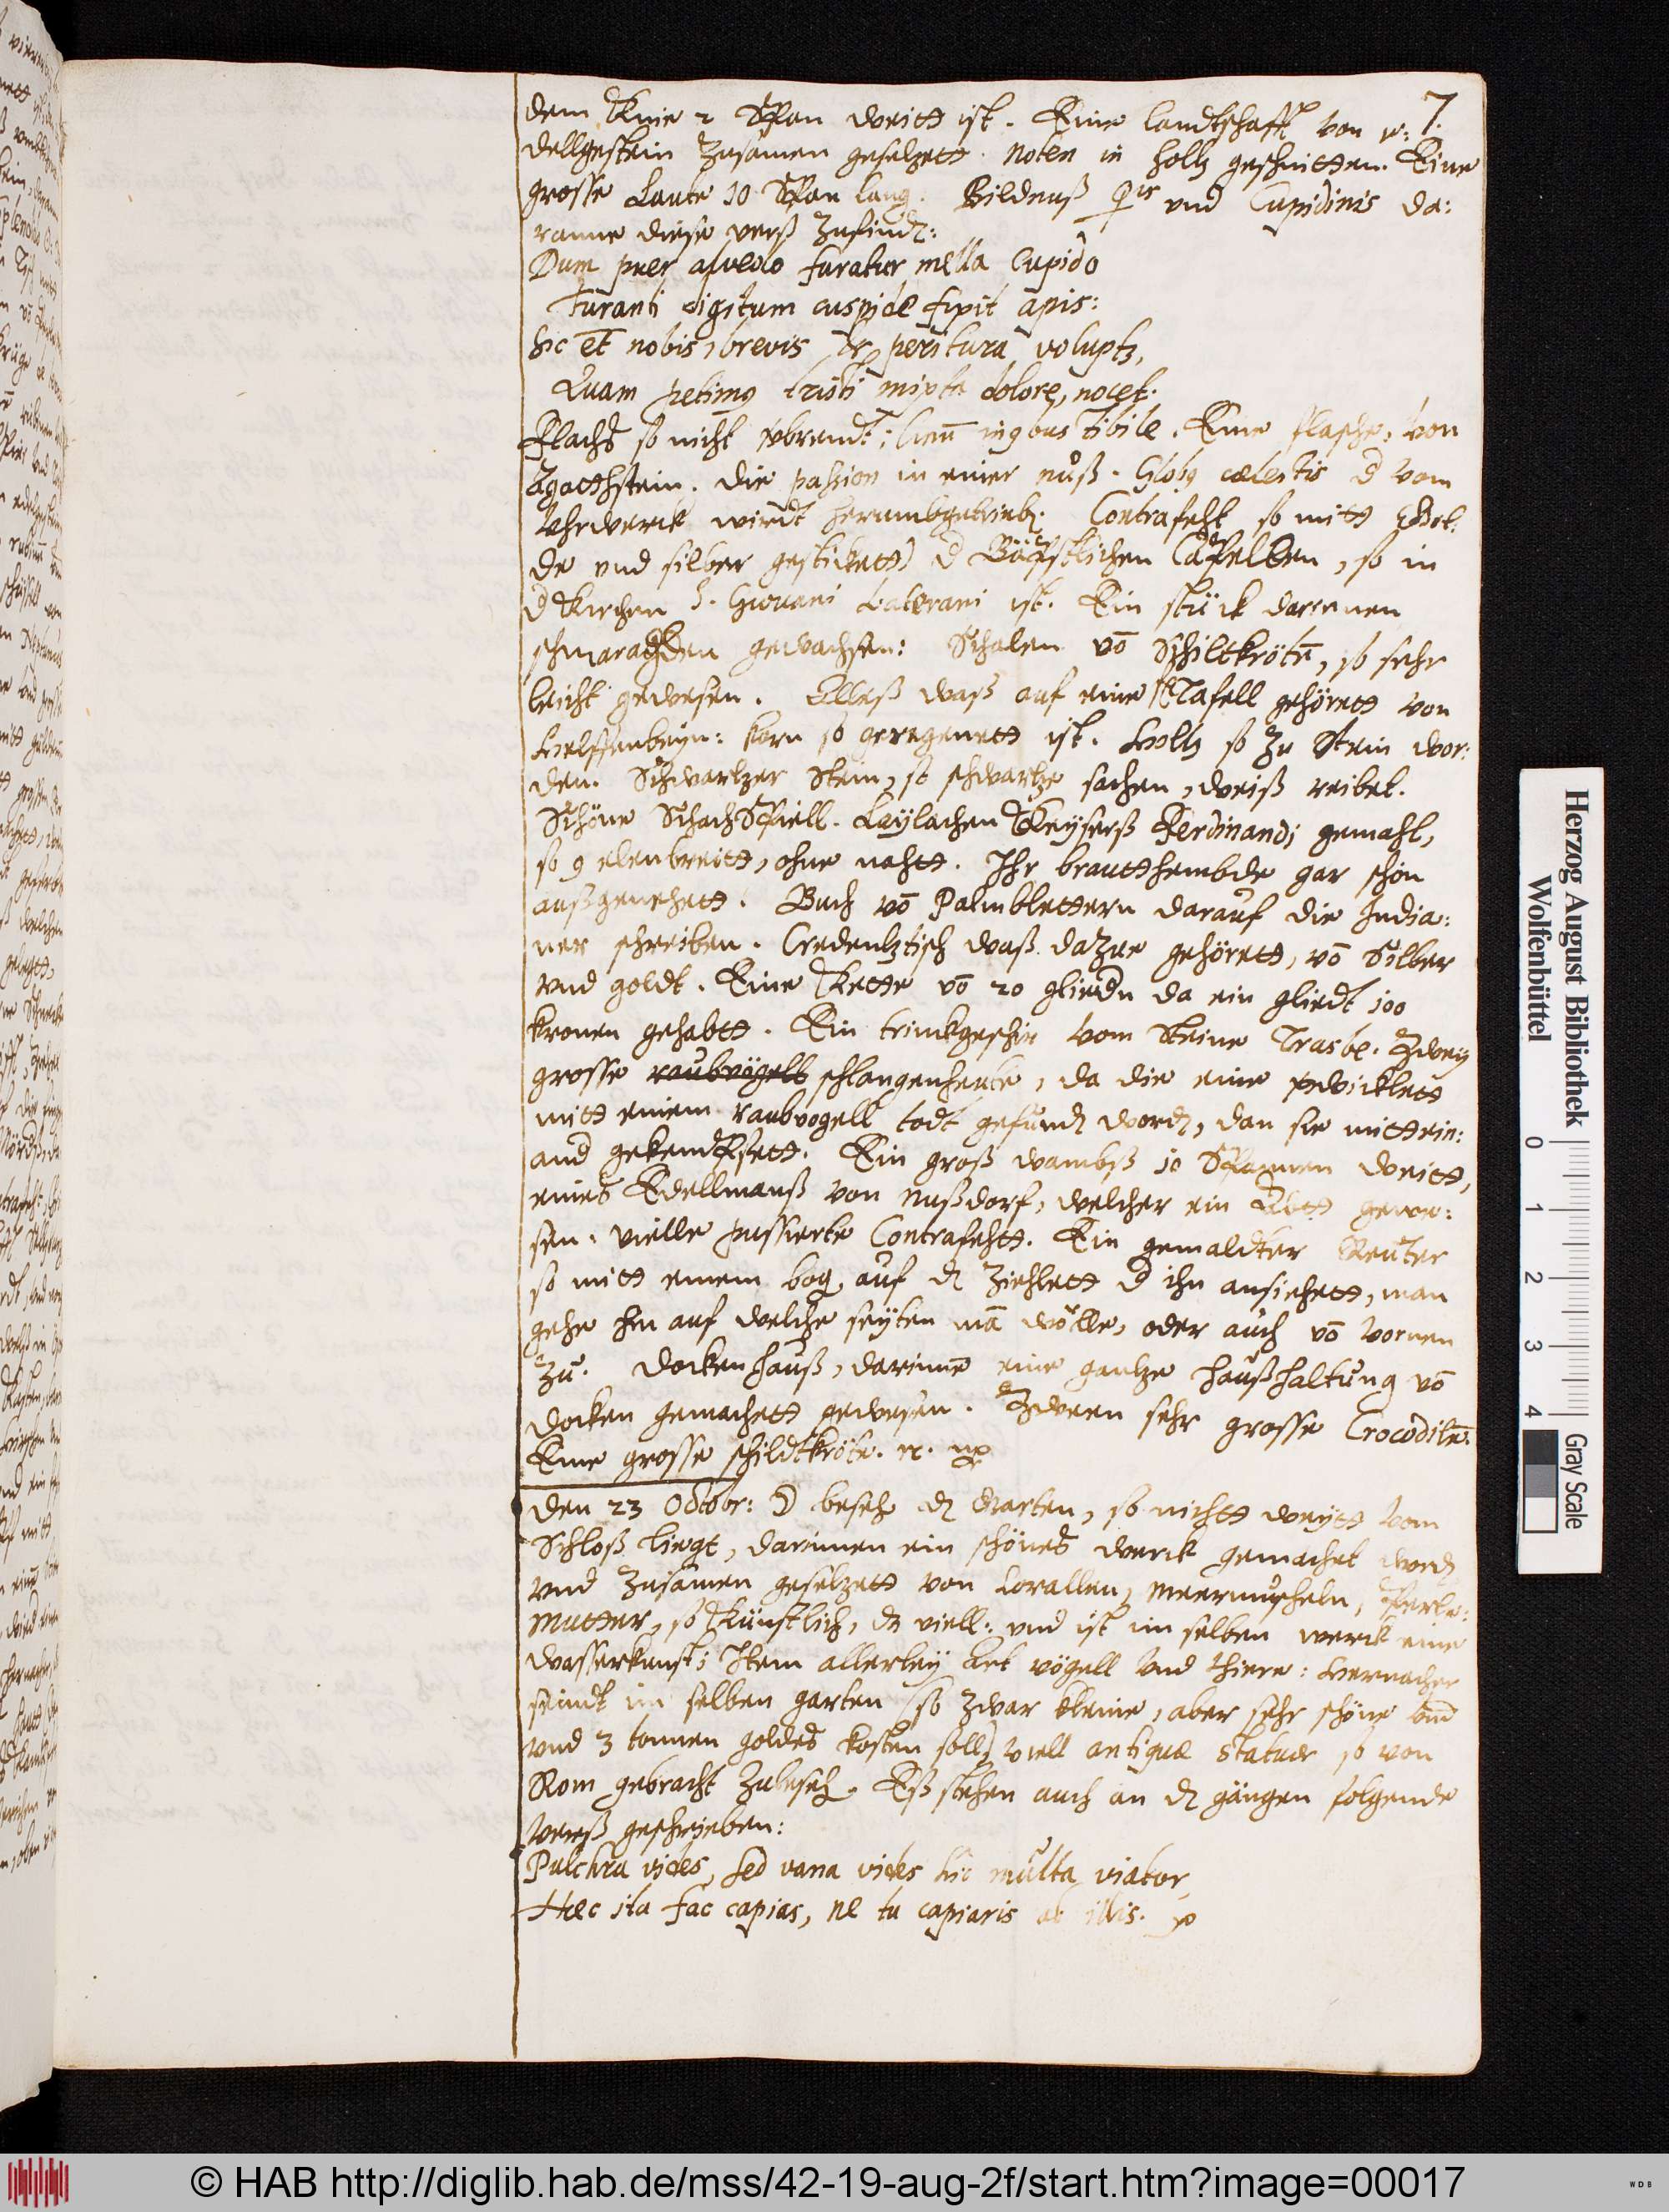 7.
dem Knie 2 Span weitt ist. Eine landtschafft von e:
dellgestein zusamen gesetzett. Noten in holtz geschnitten. Eine
grosse Laute 10 Span lang. Bildnuß ♀is und Cupidinis da:
ranne diese verß zufind:
Dum puer alveolo furatur mella Cupido
Furanti digitum cuspide fixit apis:
Sic et nobis, brevis et peritura volupts,
Quam petimus tristi mixta dolore, nocet.
Flachs so nicht verbrendt: Eine flasche, von
Agattstein. Die passion in einer nuß. Globus cælestis d vom
Uhrwerck wirdt herumbgetrieb. Contrafeht so mitt Gol:
de und silber gestickett) d Bäpstlichen Capellen, so in
d Kirchen S. Giovani Laterani ist. Ein stück darinnen
schmaragden gewachsen: Schalen vō Schiltkrötē, so sehr
leicht gewesen. Alleß waß auf eine Tafell gehörett von
Helffenbeyn: korn so geregenett ist. Holtz so zu Stein wor:
den. Schwartzer Stein, so schwartze sachen, weiß reibet.
Schöne SchachSpiell. Laÿlachen Keÿserß Ferdinandi gemahl,
so 9 elenbreitt, ohne nahtt. Ihr brautthembde gar schon
außgenehett. Buch vō Palmblettern darauf die India:
ner schreiben. Credentztisch waß dazue gehörett, vō Silber
und goldt. Eine Kette vō 20 gliedn da ein gliedt 100
kronen gehabtt. Ein trinckgeschir vom Steine Trasbe. Zwey
grosse raubvögell schlangenheute, da die eine verwicklett
mitt einem raubvogell todt gefund word, dan sie mittein:
and gekempffett. Ein groß wambß 10 Spannen weitt,
eines Edellmanß von Nußdorf, welcher ein Abtt gewe:
sen. Vielle possierte Contrafehtt. Ein gemaldter Reuter
so mitt einem bog auf d ziehlett d ihn ansiehett, man
gehe hin auf welche seyten mā wölle, oder auch vō vornen
zu. Dockenhauß, darinne eine gantze haußhaltung vō
docken gemachett gewesen. Zween sehr grosse Crocodilē.
Eine grosse schildtkröte. etc.
Den 23 Octobr: ☽ beseh d Garten, so nichtt weytt vom
Schloß liegt, darinnen ein schönes werck gemachet word
und zusamen gesetzett von Corallen, Meermuscheln, Perle:
mutter, so künstlich, de viell: und ist im selben werck eine
wasserkunst; Item allerleÿ Art vögell und thiere: Hernacher
seindt im selben garten (so zwar kleine, aber sehr schöne
und 3 tonnen goldes kosten soll) viell antiquæ statuæ so von
Rom gebracht zubeseh. Eß stehen auch an d gängen folgende
Verß geschrieben:
Pulchra vides, sed vana vides hic multa viator,
Hæc ita fac capias, ne tu capiaris ab illis.
Herzog August Bibliothek
Wolfenbüttel
0 1 2 3 4
Gray Scale
© HAB http://diglib.hab.de/mss/42-19-aug-2f/start.htm?image=00017
WDB